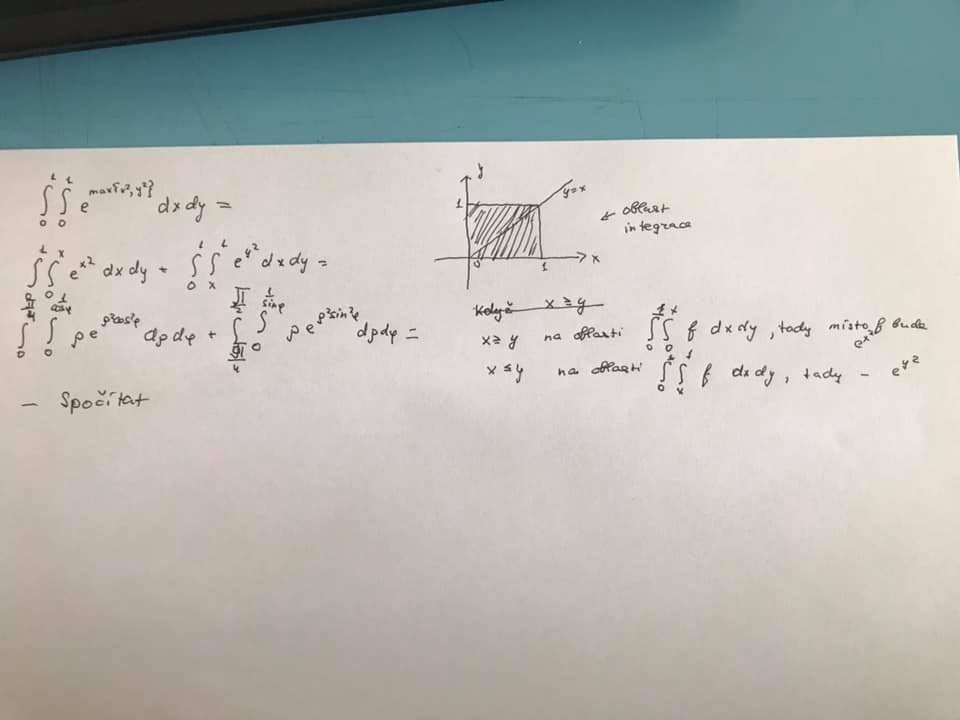 ∫₀¹ ∫₀¹ e^{max{x², y²}} dx dy =
∫₀¹ ∫₀ˣ e^{x²} dx dy + ∫₀¹ ∫ₓ¹ e^{y²} dx dy =
∫₀^{π/4} ∫₀^{1/cosφ} ρ e^{ρ²cos²φ} dρ dφ + ∫_{π/4}^{π/2} ∫₀^{1/sinφ} ρ e^{ρ²sin²φ} dρ dφ =
– Spočítat
y
1
y=x
← oblast
integrace
0 1 x
Když x ≥ y
x ≥ y na oblasti ∫₀¹ ∫₀ˣ f dx dy, tady místo f bude e^{x²}
x ≤ y na oblasti ∫₀¹ ∫ₓ¹ f dx dy, tady – e^{y²}